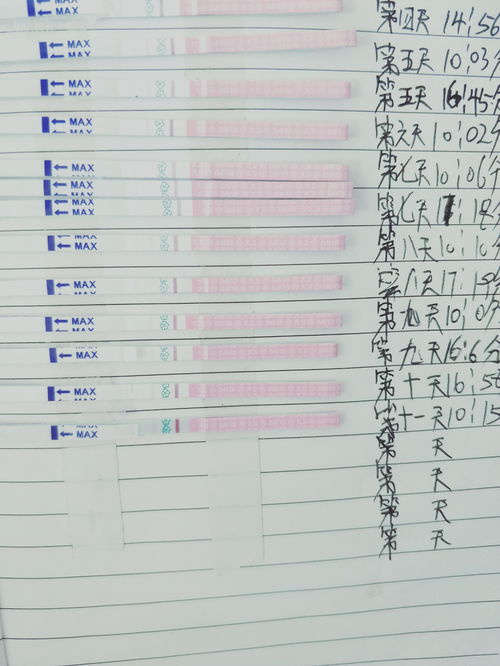 第四天 14:56
← MAX
第五天 10:03分
← MAX
第五天 16:45分
← MAX
第六天 10:02分
← MAX
第七天 10:06分
← MAX
← MAX
第七天 17:18分
← MAX
第八天 10:10分
← MAX
第八天 17:19分
← MAX
第九天 10:0分
← MAX
第九天 16:6分
← MAX
第十天 16:55
← MAX
第十一天 10:15
← MAX
第 天
第 天
第 天
第 天